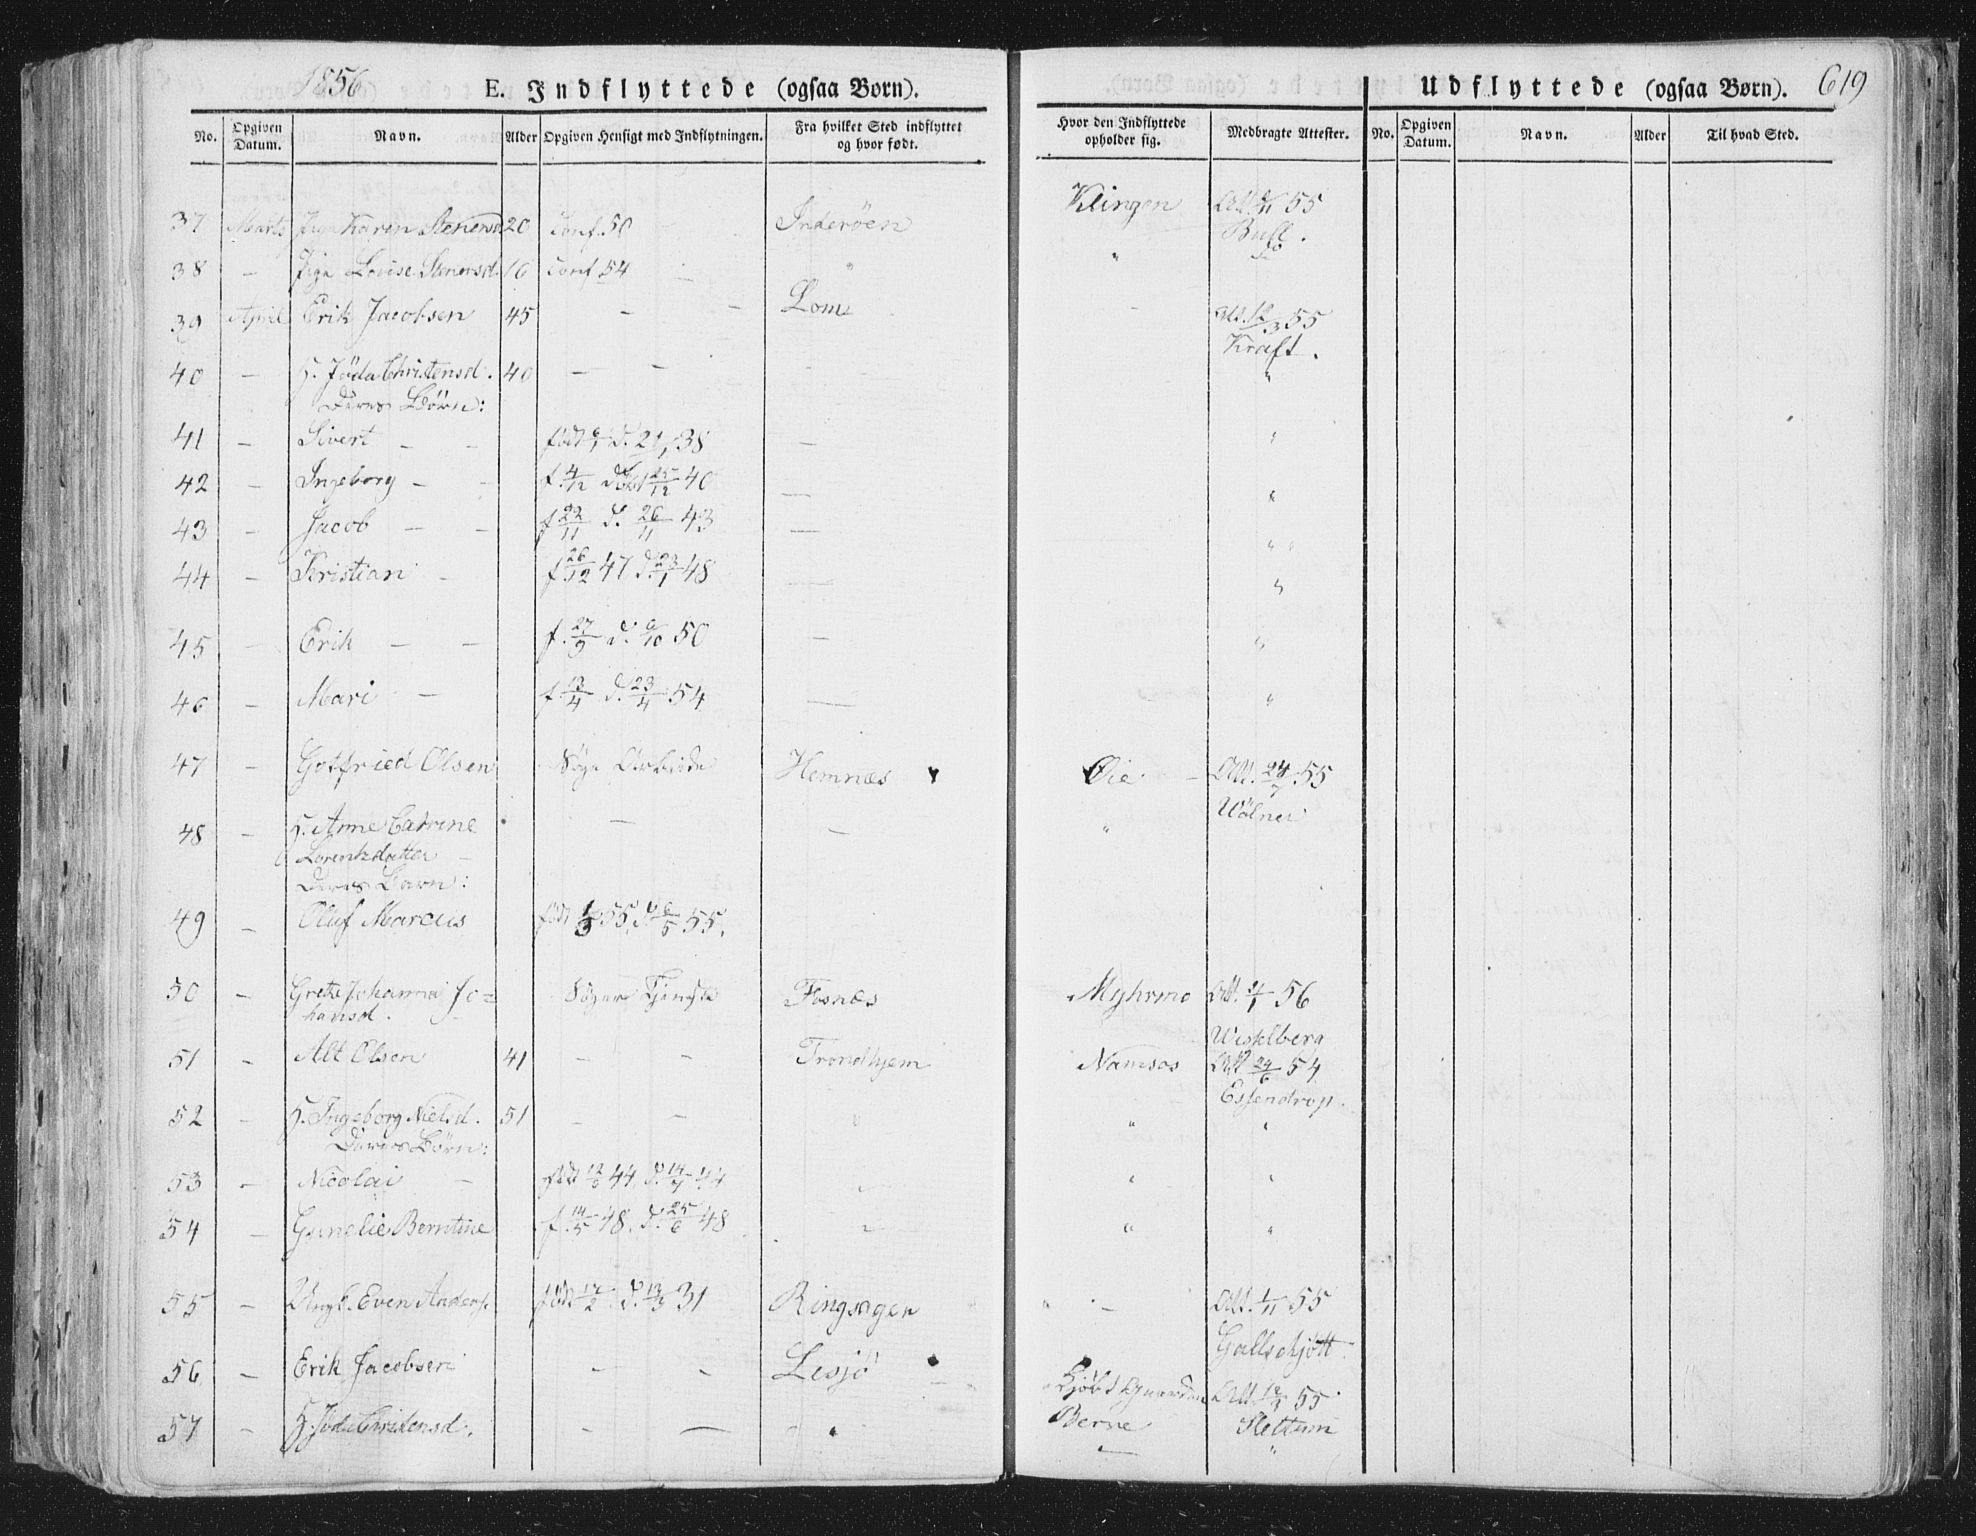 1856
E. Indflyttede (ogsaa Børn).
Udflyttede (ogsaa Børn). 619
No. Opgiven Datum. Navn. Alder Opgiven Hensigt med Indflytningen. Fra hvilket Sted indflyttet og hvor født. Hvor den Indflyttede opholder sig. Medbragte Attester. No. Opgiven Datum. Navn. Alder Til hvad Sted.
37 Marts Karen 20 Conf. 50 Inderöen Klingen Att. 55
Bull.
38 - Louise Stenersd. 16 Conf 54 " "
39 April Erik Jacobsen 45 - - Lom - Att. 12/3 55
Kraft.
40 - H. Jöda Christensd. 40 - - "
Deres Börn:
41 - Sivert - - født d. 38 - "
42 - Ingeborg - - f. 4/12 25/12 40 - "
43 - Jacob - - f. 22/11 d. 26/11 43 - "
44 - Kristian - f. 26/12 47 d. 23/1 48 - "
45 - Erik - - f. 27/9 d. 6/10 50 - "
46 - Mari - f. 13/4 d. 23/4 54 - "
47 - Gotfried Olsen Söge Arbeide Hemnæs Øie - Att. 24/7 55
Wölner
48 - H. Anne Catrine - - "
Lorentzdatter -
Deres Barn:
49 - Oluf Marcus født 55, d. 6/5 55.
50 - Grete Johanna Jo=
hansd. Söger Tjeneste Fosnæs Myhrmo Att. 56
Wesselberg
51 - Alt Olsen 41 - - Trondhjem Namsos Att 24/6 54
Essendrop.
52 - H. Ingeborg Nielsd. 51 - - " " "
Deres Börn:
53 - Nicolai - født 44, d. 14/7 44 " " "
54 - Gunelie Berntine f. 14/5 48, d. 25/6 48 " " "
55 - Ungk. Even Anders. født 17/2 d. 13/3 31 Ringsager " - Att. 1/11 55
Gallschjött
56 - Erik Jacobsen - - Lesjö Att. 12/3 55
Berne Slettum
57 - H. Jöda Christensd. - - " - "